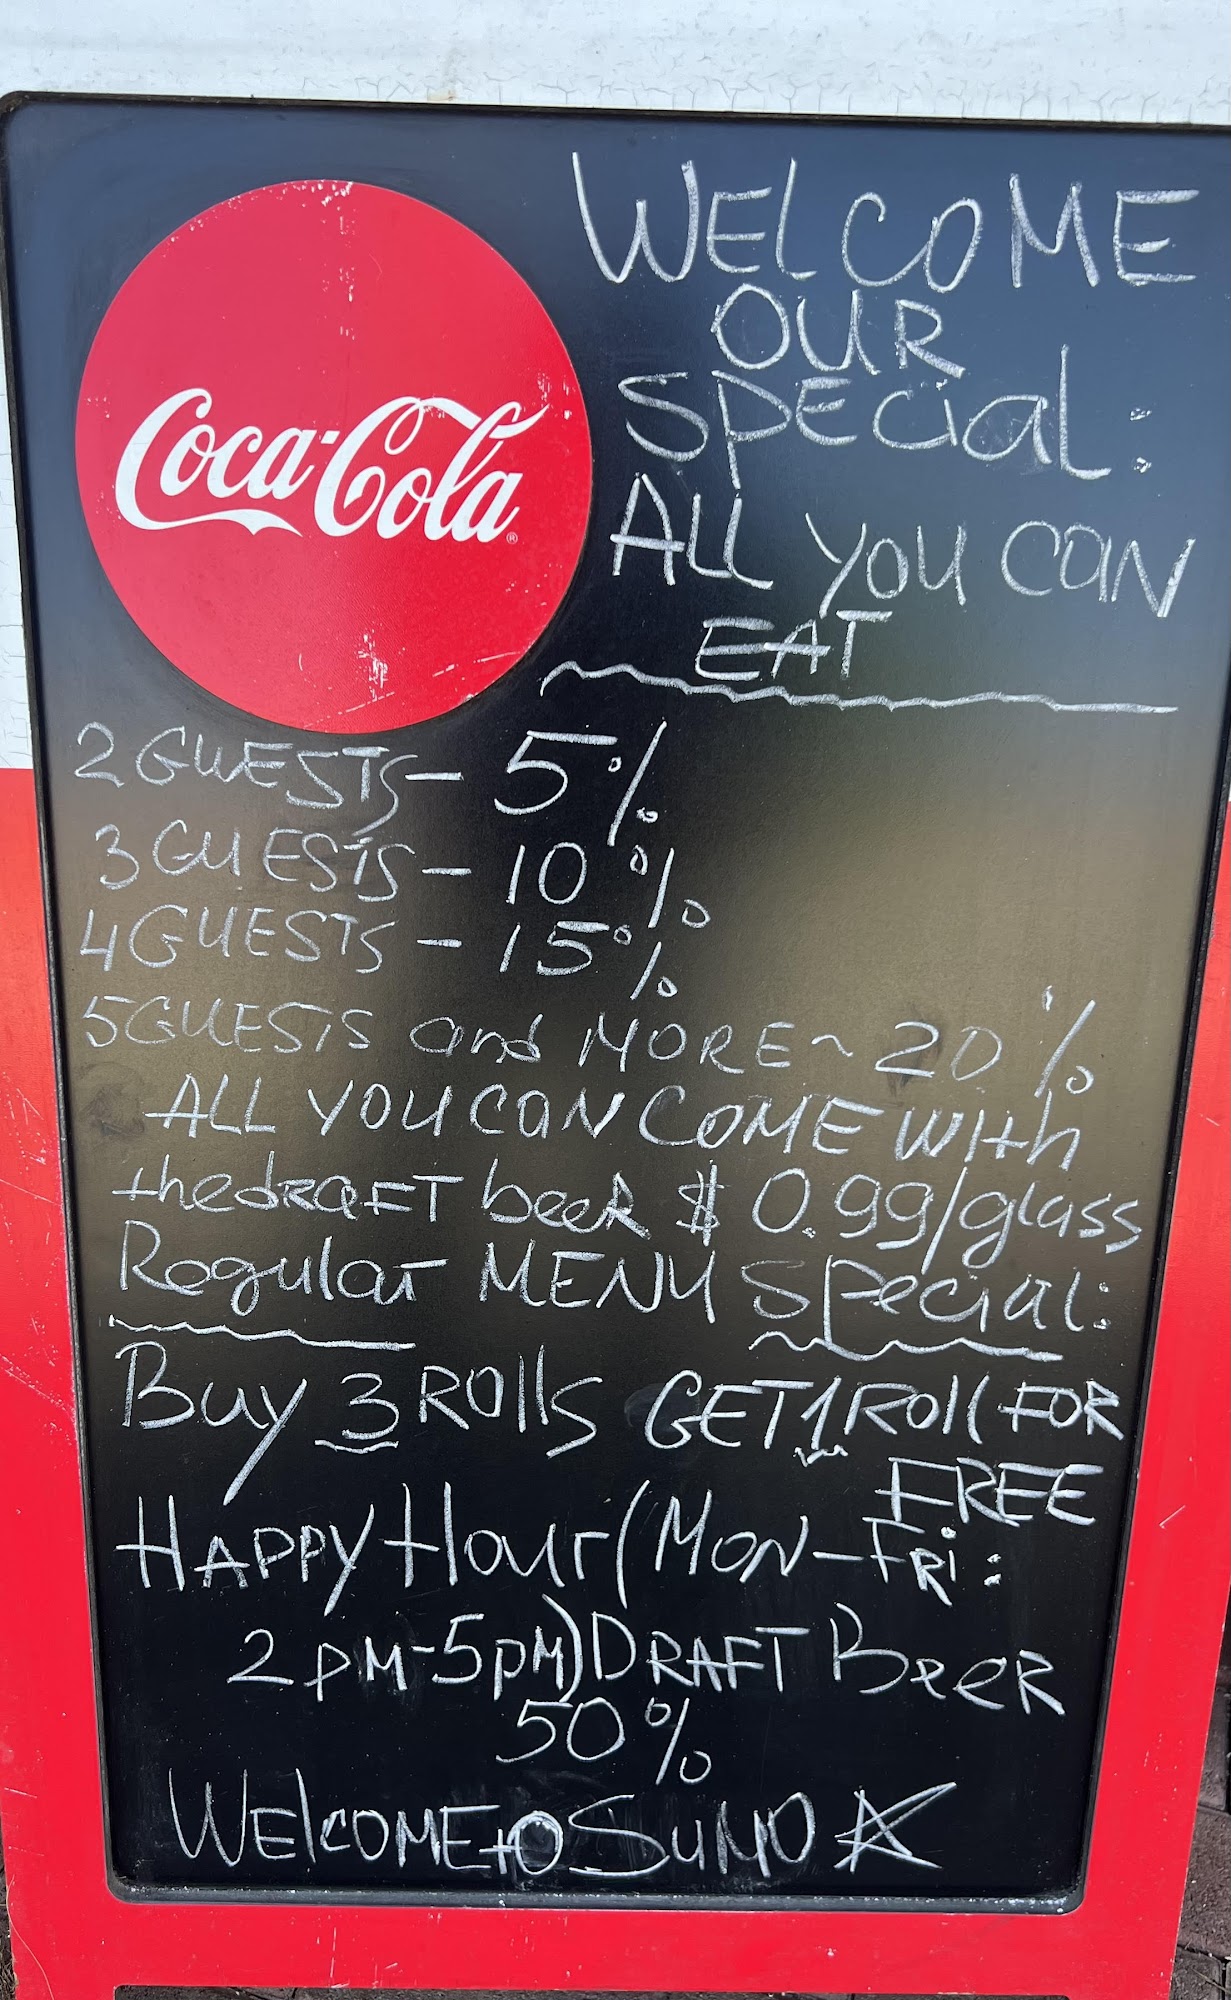 Coca-Cola
WELCOME
OUR
SPECial:
ALL YOU CAN
EAT
2 GUESTS - 5%
3 GUESTS - 10%
4 GUESTS - 15%
5 GUESTS and MORE ~ 20%
ALL YOU CAN COME With
the dRaFT beeR $ 0.99/glass
Regular MENU Special:
Buy 3 ROllS GET 1 ROll FOR
FREE
HAPPY Hour (MON-FRi:
2 PM-5PM) DRAFT BeeR
50%
WElCOME to SUMO